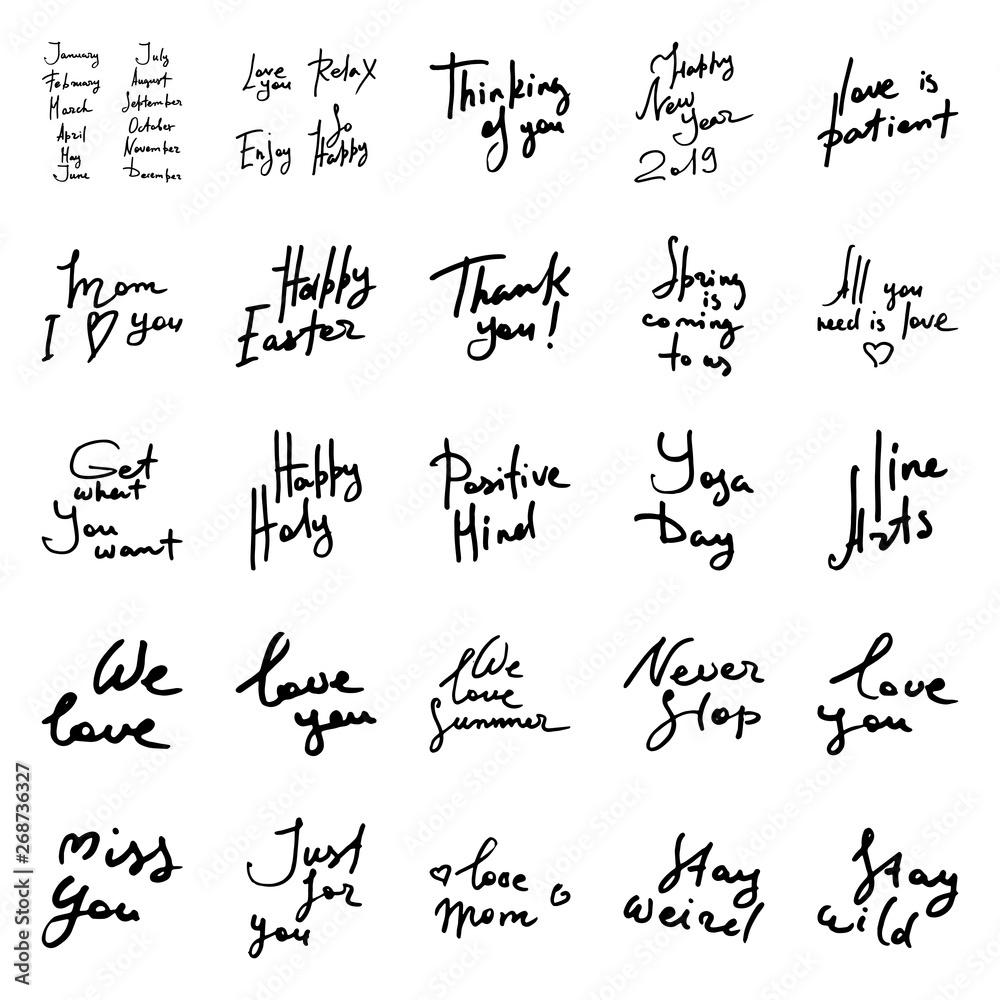 January
February
March
April
May
June
July
August
September
October
November
December
Love you
Relax
Enjoy
So Happy
Thinking
of you
Happy
New
Year
2019
love is
patient
Mom
I you
Happy
Easter
Thank
you!
Spring
is
coming
to us
All you
need is love
Get
what
You
want
Happy
Holy
Positive
Mind
Yoga
Day
line
Arts
We
love
love
you
We
love
summer
Never
Stop
love
you
Miss
you
Just
for
you
love
Mom
Stay
weird
Stay
wild
Adobe Stock | #268736327